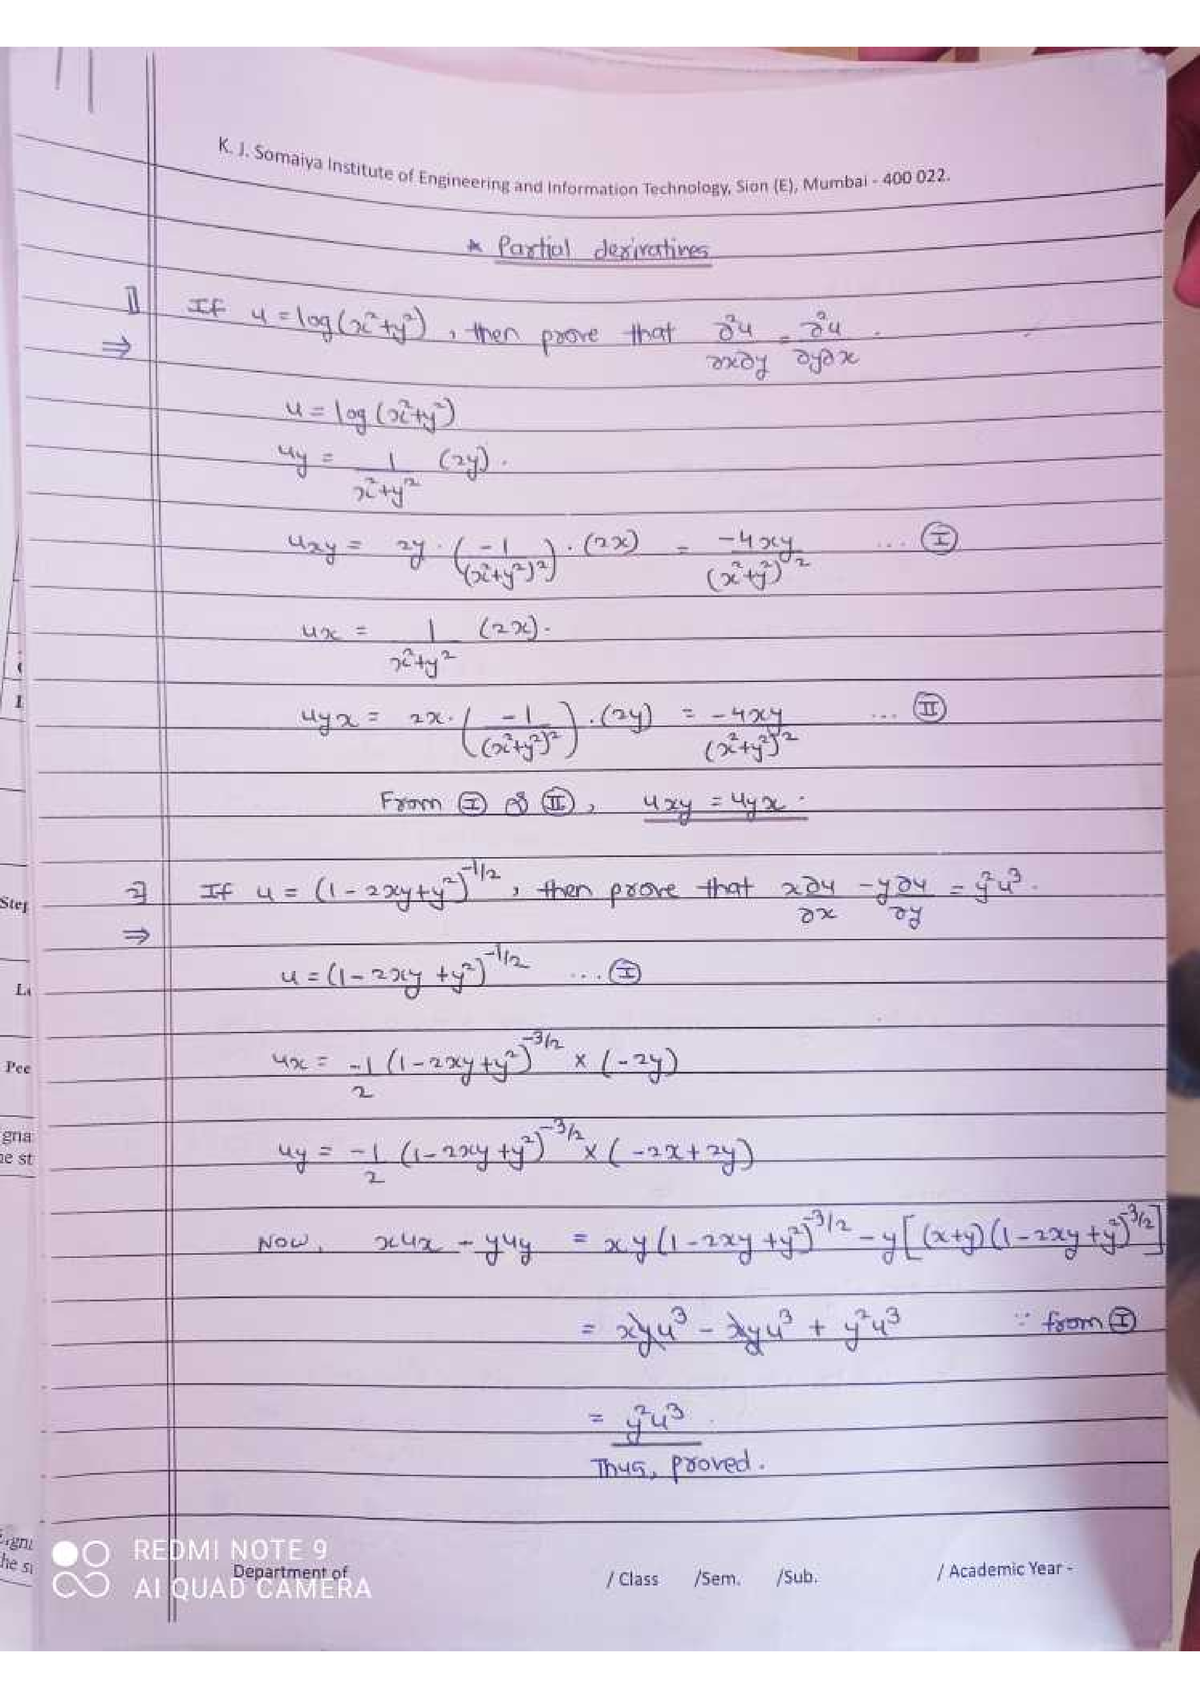 K. J. Somaiya Institute of Engineering and Information Technology, Sion (E), Mumbai - 400 022.
* Partial derivatives
1] If u = log(x²+y²), then prove that ∂²u/∂x∂y = ∂²u/∂y∂x.
⇒
u = log(x²+y²)
uy = 1/(x²+y²) (2y).
uxy = 2y · (-1/(x²+y²)²) · (2x) = -4xy/(x²+y²)² ... Ⓘ
ux = 1/(x²+y²) (2x).
uyx = 2x · (-1/(x²+y²)²) · (2y) = -4xy/(x²+y²)² ... Ⅱ
From Ⓘ & Ⅱ, uxy = uyx.
2] If u = (1-2xy+y²)^-1/2, then prove that x∂u/∂x - y∂u/∂y = y²u³.
⇒
u = (1-2xy+y²)^-1/2 ... Ⓘ
ux = -1/2 (1-2xy+y²)^-3/2 × (-2y)
uy = -1/2 (1-2xy+y²)^-3/2 × (-2x+2y)
Now, xux - yuy = xy(1-2xy+y²)^-3/2 - y[(x+y)(1-2xy+y²)^-3/2]
= xyu³ - xyu³ + y²u³ ∵ from Ⓘ
= y²u³.
Thus, proved.
REDMI NOTE 9
AI QUAD CAMERA
Department of / Class /Sem. /Sub. / Academic Year -
Step
Pee
gna
he si